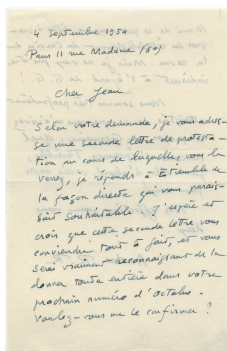 4 Septembre 1954
Paris 11 rue Madame (6e)
Cher Jean
Selon votre demande, je vous adres-
se une seconde lettre de protesta-
tion au cours de laquelle, vous le
verrez, je réponds à l'ensemble de
la façon directe qui vous parais-
sait souhaitable. J'espère et
crois que cette seconde lettre vous
conviendra tout à fait, et vous
serai vraiment reconnaissant de la
donner toute entière dans votre
prochain numéro d'Octobre.
Voulez-vous me le confirmer ?